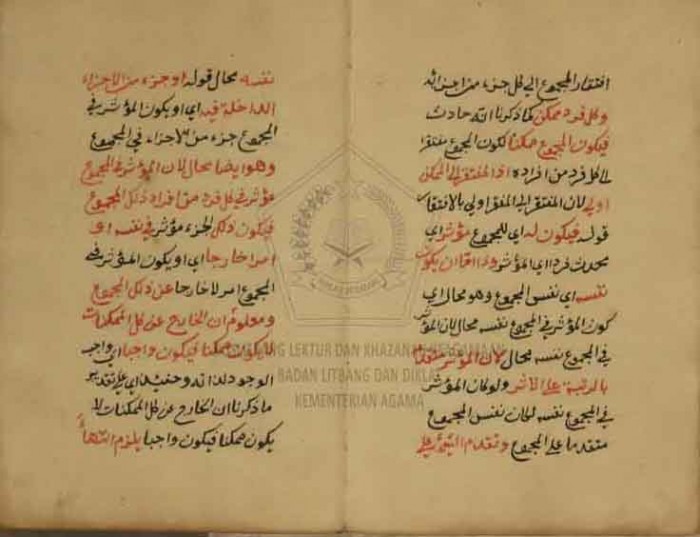 افتقار المجموع الي كل جزء من اجزائه
وكل فرد ممكن كما ذكرنا انه حادث
فيكون المجموع ممكنا لكون المجموع مفتقرا
الى كل فرد من افراده اذ المفتقر الى الممكن
اولى لان المفتقر الى المفتقر اولي بالافتقار
قوله فيكون له اي للمجموع مؤثر اي
محدث فرد اى المؤثر وذا اما ان يكون
نفسه اي نفس المجموع وهو محال اي
كون المؤثر في المجموع نفسه محال لان المؤثر
في المجموع نفسه محال لان المؤثر متقدما
بالرتبة على الاثر ولو كان المؤثر
في المجموع نفسه لكان نفس المجموع
متقدما على المجموع وتقدم الشيء على
نفسه محال قوله او جزء من الاجزاء
الداخلة فيه اي او يكون المؤثر في
المجموع جزء من الاجزاء في المجموع
وهو ايضا محال لان المؤثر في المجموع
مؤثر في كل فرد من افراد ذلك المجموع
فيكون ذلك الجزء مؤثر في نفسه او
امرا خارجا اي او يكون المؤثر في
المجموع امرا خارجا عن ذلك المجموع
ومعلوم ان الخارج عن كل الممكنات
لا يكون ممكنا فيكون واجبا اي واجب
الوجود لذاته وحينئذ اي على تقدير
ما ذكرنا ان الخارج عن كل الممكنات لا
يكون ممكنا فيكون واجبا يلزم انتهاء
LITBANG LEKTUR DAN KHAZANAH KEAGAMAAN
BADAN LITBANG DAN DIKLAT
KEMENTERIAN AGAMA